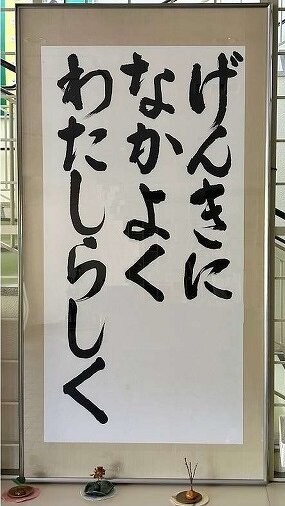 げんきに
なかよく
わたしらしく